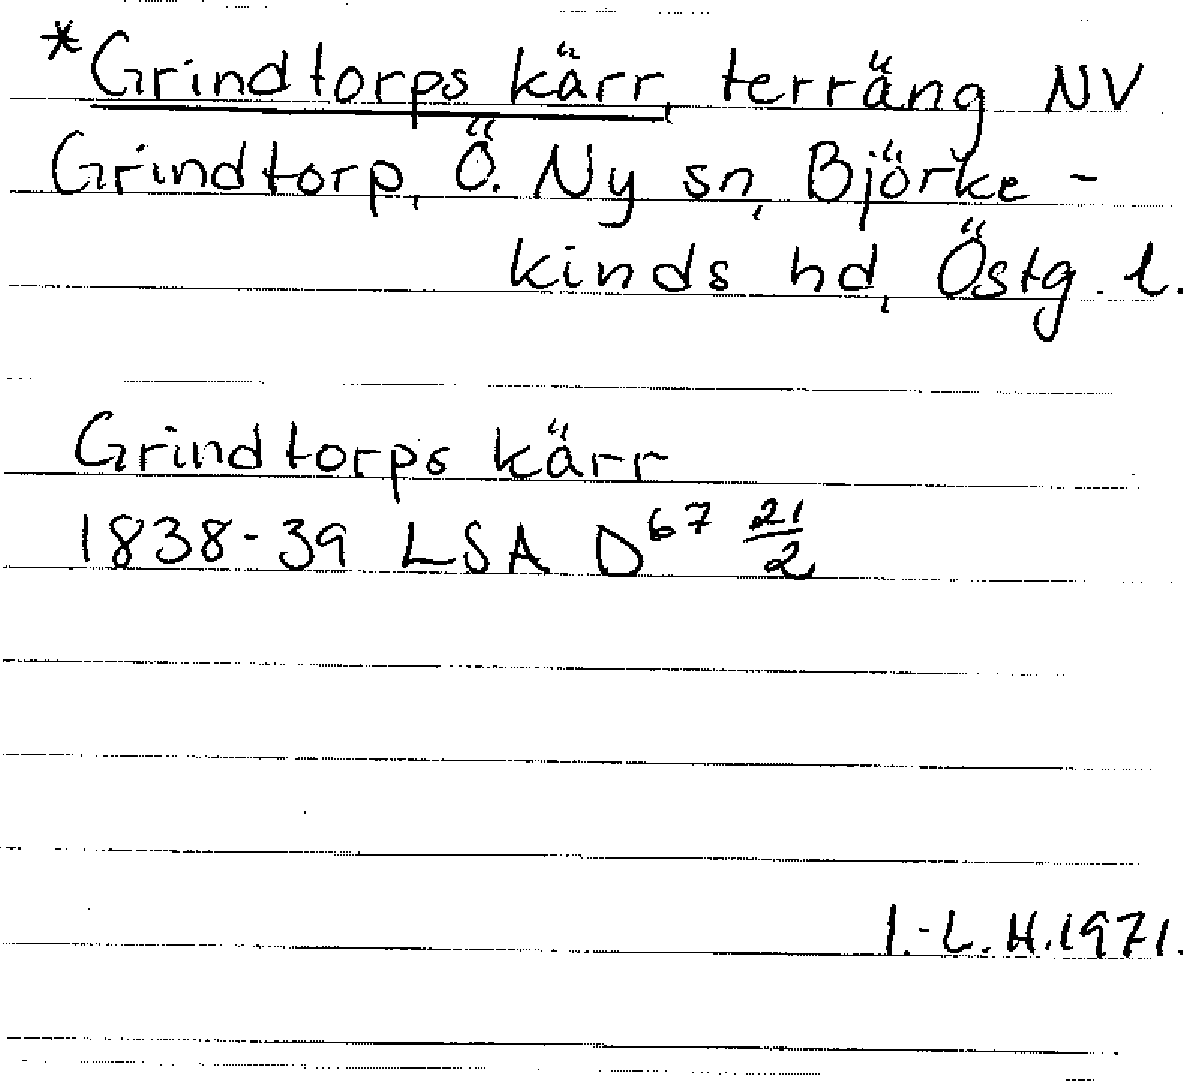 *Grindtorps kärr, terräng NV
Grindtorp, Ö. Ny sn, Björke-
kinds hd, Östg. l.
Grindtorps kärr
1838-39 LSA D⁶⁷ 21/2
I.-L. H. 1971.